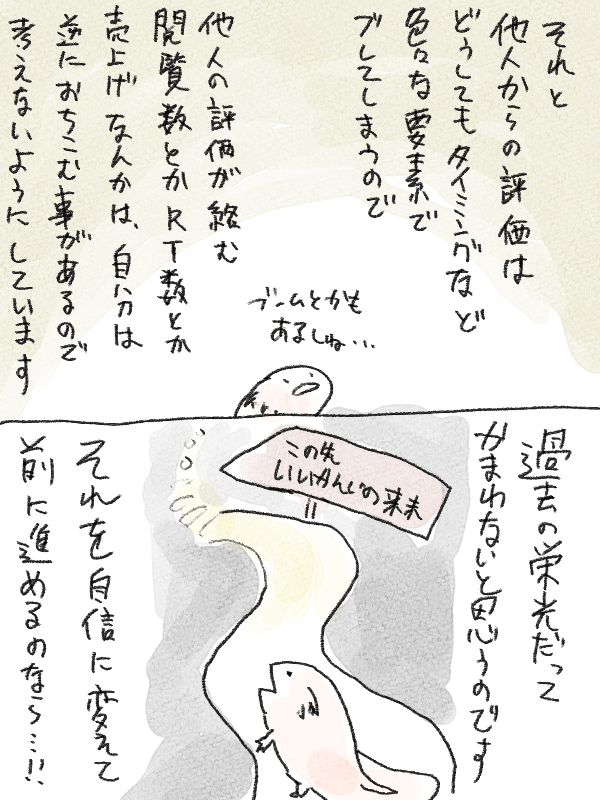 それと
他人からの評価は
どうしてもタイミングなど
色々な要素で
ブレてしまうので
他人の評価が絡む
閲覧数とかRT数とか
売上げなんかは、自分は
逆におちこむ事があるので
考えないようにしています
ブームとかも
あるしね…
過去の栄光だって
かまわないと思うのです
この先
いいかんじの未来
それを自信に変えて
前に進めるのなら…!!